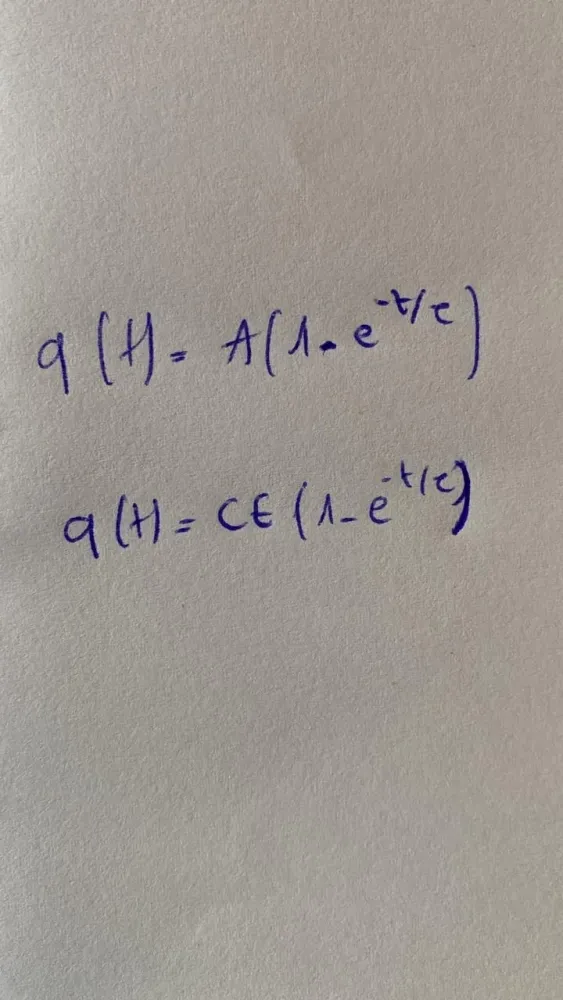 q(t) = A(1 - e^{-t/τ})
q(t) = CE(1 - e^{-t/τ})